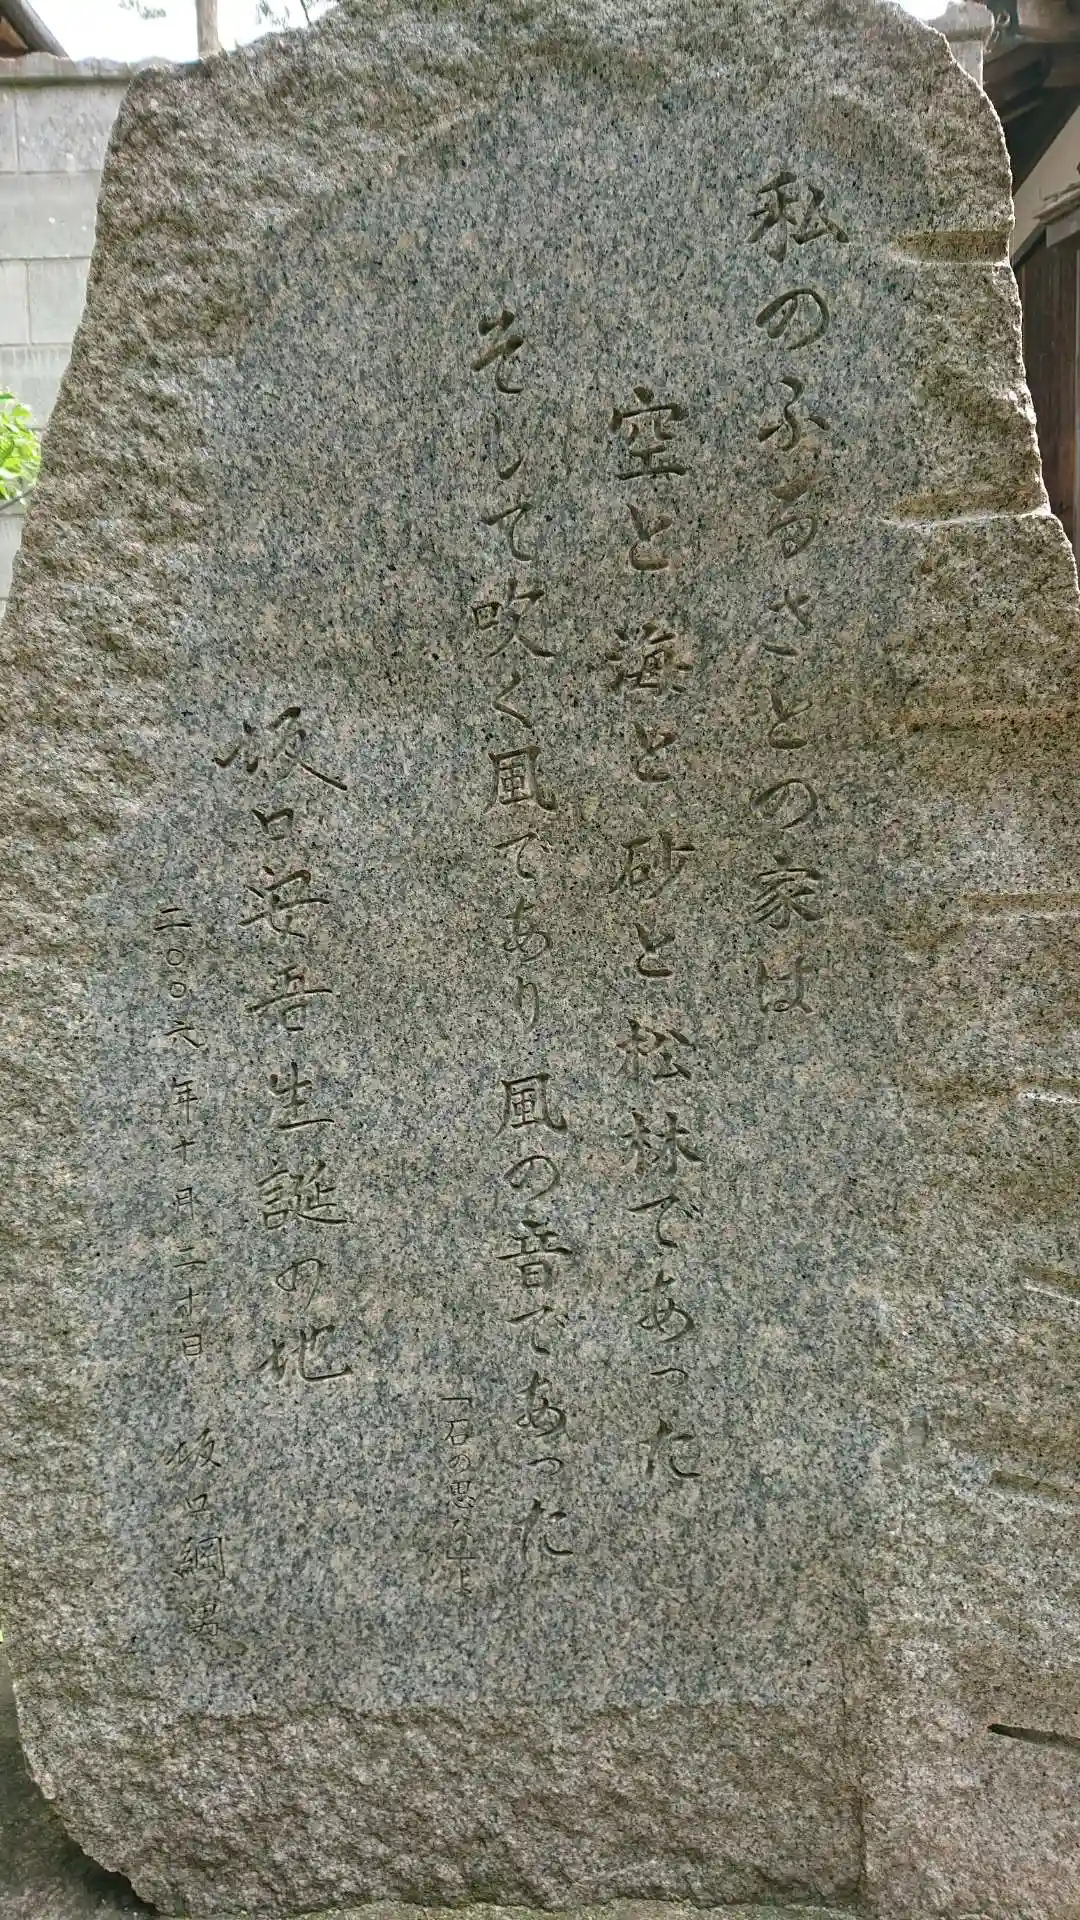 私のふるさとの家は
空と海と砂と松林であった
そして吹く風であり風の音であった
「石の思ひ」より
坂口安吾生誕の地
二〇〇六年十月二十日 坂口綱男